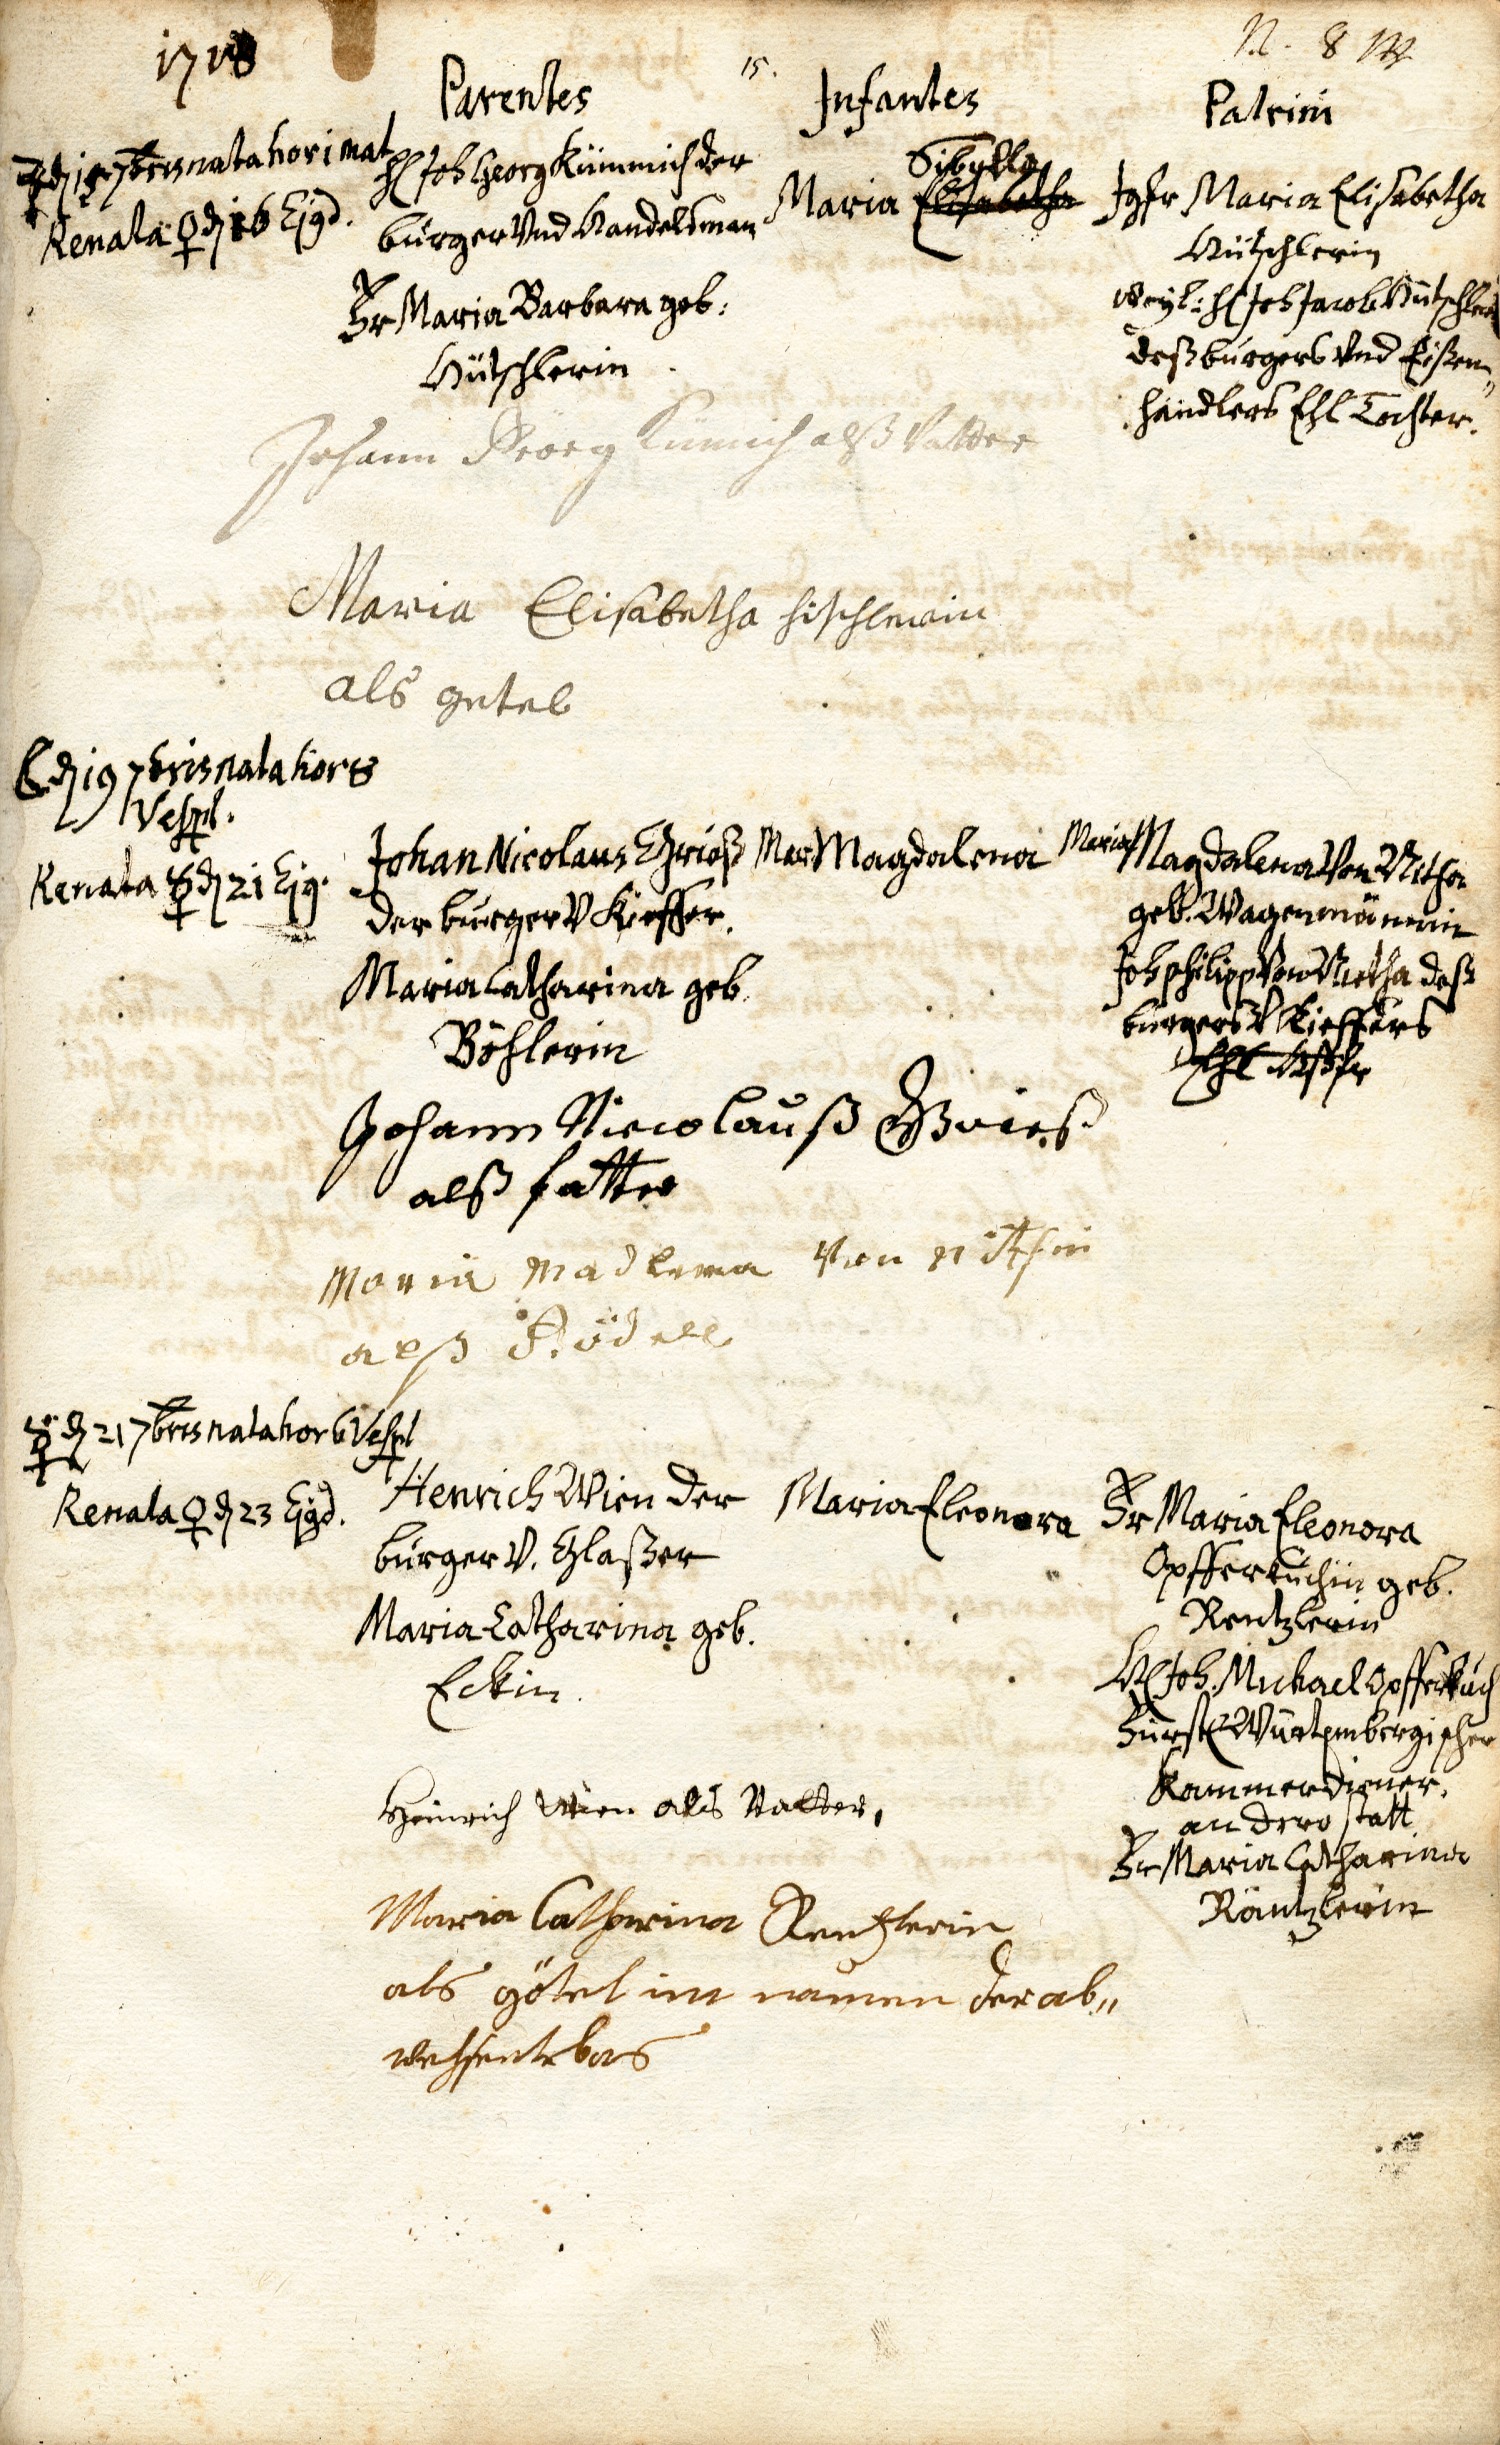 1718
15.
N. 8
Parentes
Infantes
Patrini
7bris nata hor 1 mat
Renata ♀ d 16 Ejgd.
H Joh Georg Kümmich der
burger Vnd Handelsman
Fr Maria Barbara geb:
Hütschlerin
Sibylla
Maria Elisabetha
Jgfr Maria Elisabetha
Hütschlerin
Weyl: H Joh Jacob Hütschlers
deß burgers Vnd Eißen„
händlers Ehl Tochter.
Johann Georg Kümich alß Vatter
Maria Elisabetha hischlerin
als getel
☾ d 19 7bris nata hor 8
Vesp.
Renata ☿ d 21 Ejg.
Johan Nicolaus Grieß
der burger V Kieffer.
Maria Catharina geb.
Böhlerin
Mar Magdalena
Maria Magdalena Von Nitha
geb. Wagenmännin
Joh philipp Von Nietha deß
burgers V Kieffers
Johann Niecolauß Grieß
alß fatter
Maria Madlena Von
alß Gödell
☿ d 21 7bris nata hor 6 Vesp
Renata ♀ d 23 Ejgd.
Henrich Wien der
burger V. Glaßer
Maria Catharina geb.
Eckin.
Maria Eleonora
Fr Maria Eleonora
Opfferkuchin geb.
Rentzlerin
H Joh. Michael Opfferkuch
Fürstl Würtembergischer
Kammerdiener.
an dero statt
Fr Maria Catharina
Räntzlerin
Heinrich Wien als Vatter,
Maria Catharina Rentzlerin
als götel im namen der ab„
wehsente bas